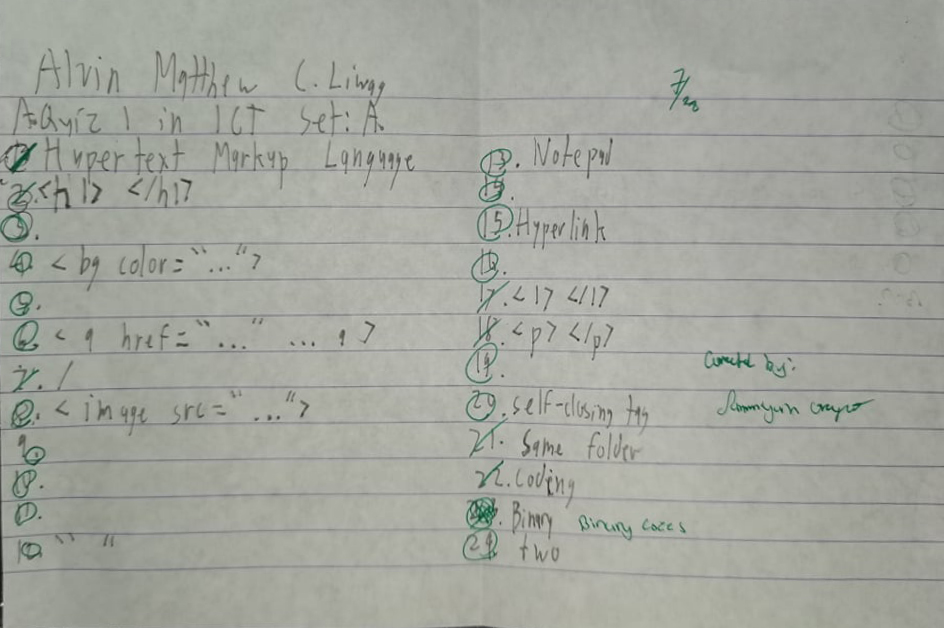 Alvin Matthew C. Liwag
A:Quiz 1 in ICT Set: A
1. Hypertext Markup Language
2. <h1> </h1>
3.
4. <bg color="...">
5.
6. <a href="..." ... a>
7. /
8. <image src="...">
9.
10.
11.
12. " "
7/28
13. Notepad
15.
15. Hyperlink
16.
17. <1> </1>
18. <p> </p>
19.
20. self-closing tag
21. Same folder
22. Coding
23. Binary Binary codes
24. two
Corrected by: